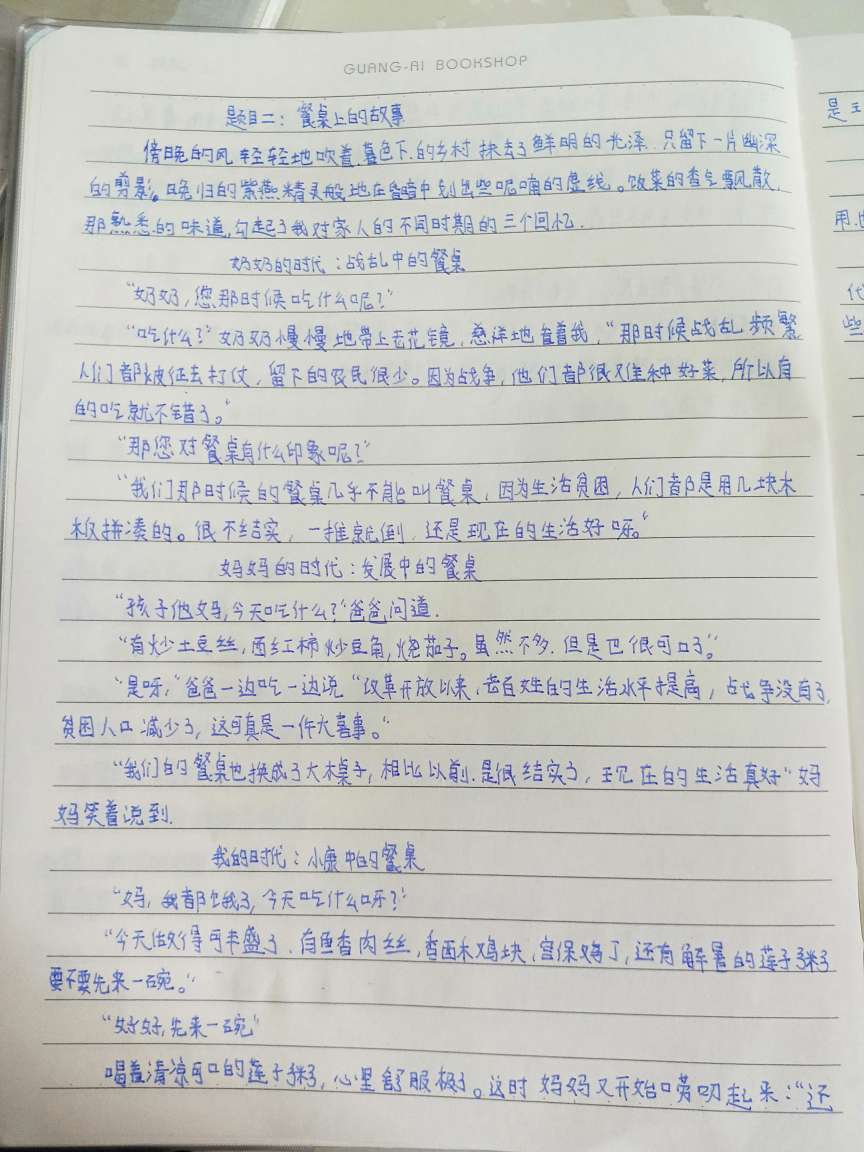 GUANG-AI BOOKSHOP
题目二：餐桌上的故事
傍晚的风轻轻地吹着,暮色下的乡村抹去了鲜明的光泽.只留下一片幽深
的剪影。晚归的紫燕精灵般地在昏暗中划出些呢喃的虚线。饭菜的香气飘散,
那熟悉的味道,勾起了我对家人的不同时期的三个回忆.
奶奶的时代：战乱中的餐桌
“奶奶,您那时候吃什么呢？”
“吃什么？”奶奶慢慢地带上老花镜,慈洋地看着我,“那时候战乱频繁
人们都被征去打仗,留下的农民很少。因为战争,他们都很难种好菜,所以有
的吃就不错了。”
“那您对餐桌有什么印象呢？”
“我们那时候的餐桌几乎不能叫餐桌,因为生活贫困,人们都是用几块木
板拼凑的。很不结实,一推就倒.还是现在的生活好呀。”
妈妈的时代：发展中的餐桌
“孩子他妈,今天吃什么？”爸爸问道.
“有炒土豆丝,西红柿炒豆角,烧茄子。虽然不多.但是也很可口了。”
“是呀,”爸爸一边吃一边说“改革开放以来,老百姓的生活水平提高,战争没有了,
贫困人口减少了,这可真是一件大喜事。”
“我们的餐桌也换成了大木桌子,相比以前.是很结实了,现在的生活真好”妈
妈笑着说到.
我的时代：小康中的餐桌
“妈,我都饿了,今天吃什么呀？”
“今天做得可丰盛了.有鱼香肉丝,香西木鸡块,宫保鸡丁,还有解暑的莲子粥
要不要先来一碗。”
“好好,先来一碗”
喝着清凉可口的莲子粥,心里舒服极了。这时妈妈又开始唠叨起来：“还
是
用
代
些